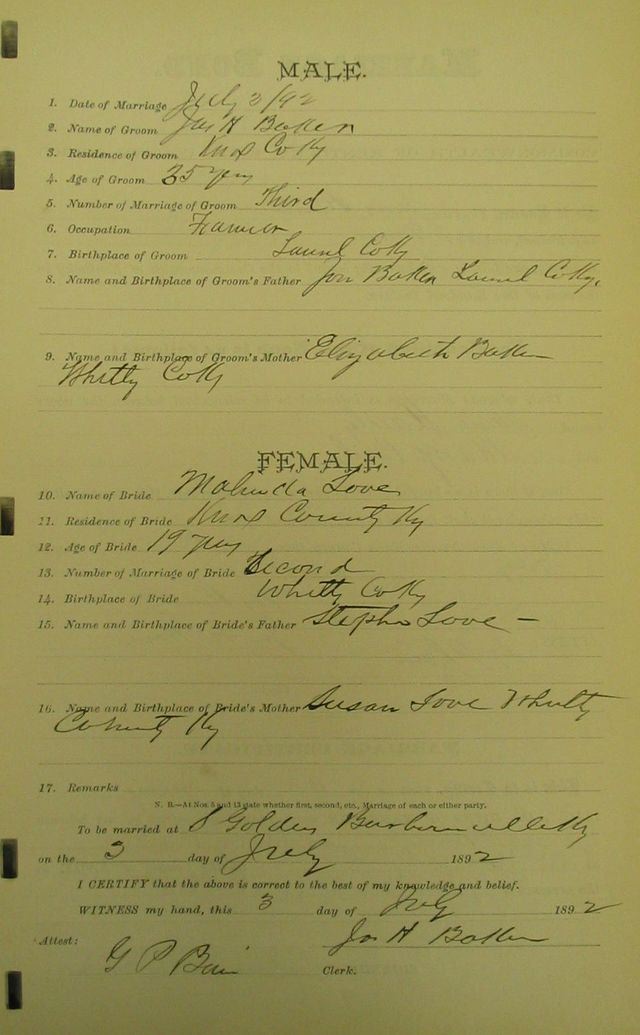 MALE.
1. Date of Marriage July 3/92
2. Name of Groom Jas H Baker
3. Residence of Groom Knox Co Ky
4. Age of Groom 35 yrs
5. Number of Marriage of Groom Third
6. Occupation Farmer
7. Birthplace of Groom Laurel Co Ky
8. Name and Birthplace of Groom's Father Baker Laurel Co Ky.
9. Name and Birthplace of Groom's Mother Elizabeth Baker
Whitly Co Ky
FEMALE.
10. Name of Bride Malinda Love
11. Residence of Bride Knox County Ky
12. Age of Bride 19 yrs
13. Number of Marriage of Bride Second
14. Birthplace of Bride Whitly Co Ky
15. Name and Birthplace of Bride's Father Stephen Love –
16. Name and Birthplace of Bride's Mother Susan Love Whitly
County Ky
17. Remarks
N. B.—At Nos. 5 and 13 state whether first, second, etc., Marriage of each or either party.
To be married at Golden Ky
on the 3 day of July 1892
I CERTIFY that the above is correct to the best of my knowledge and belief.
WITNESS my hand, this 3 day of July 1892
Jas H Baker
Attest:
G P
Clerk.